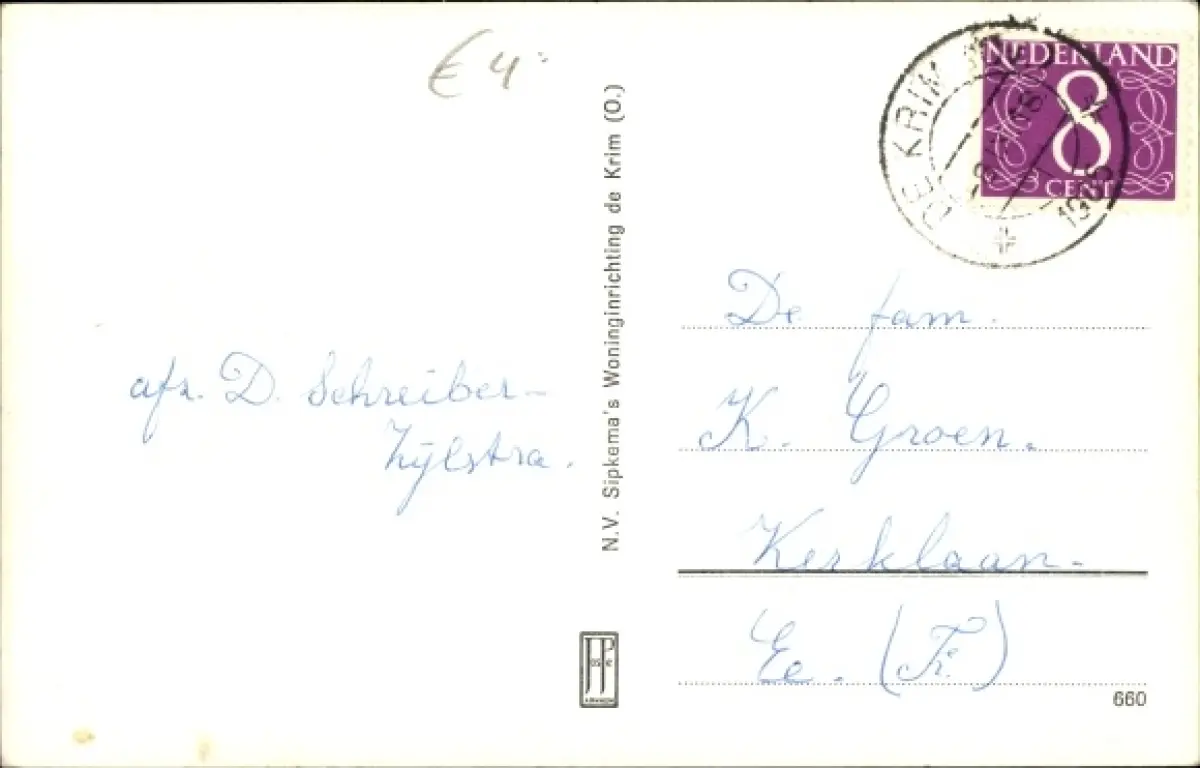 € 4
afz. D. Schreiber-
Zijlstra.
N.V. Sipkema's Woninginrichting de Krim (O.)
NEDERLAND
8
CENT
DE KRIM
1965
De fam.
K. Groen.
Kerklaan.
Ee. (Fr.)
JosPé
ARNHEM
660